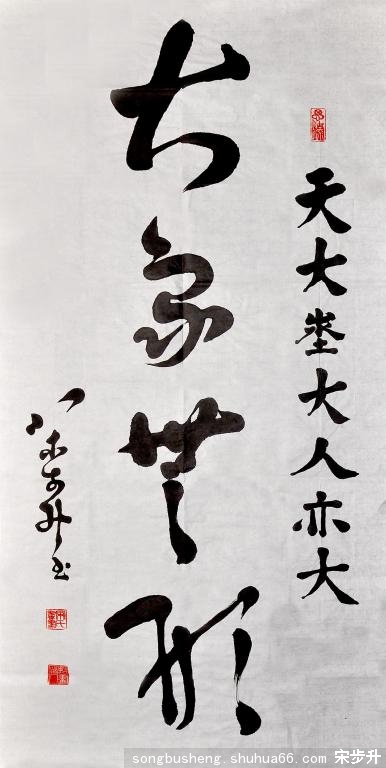 天大埊大人亦大
大象無形
宋步升书
songbusheng.shuhua66.com 宋步升